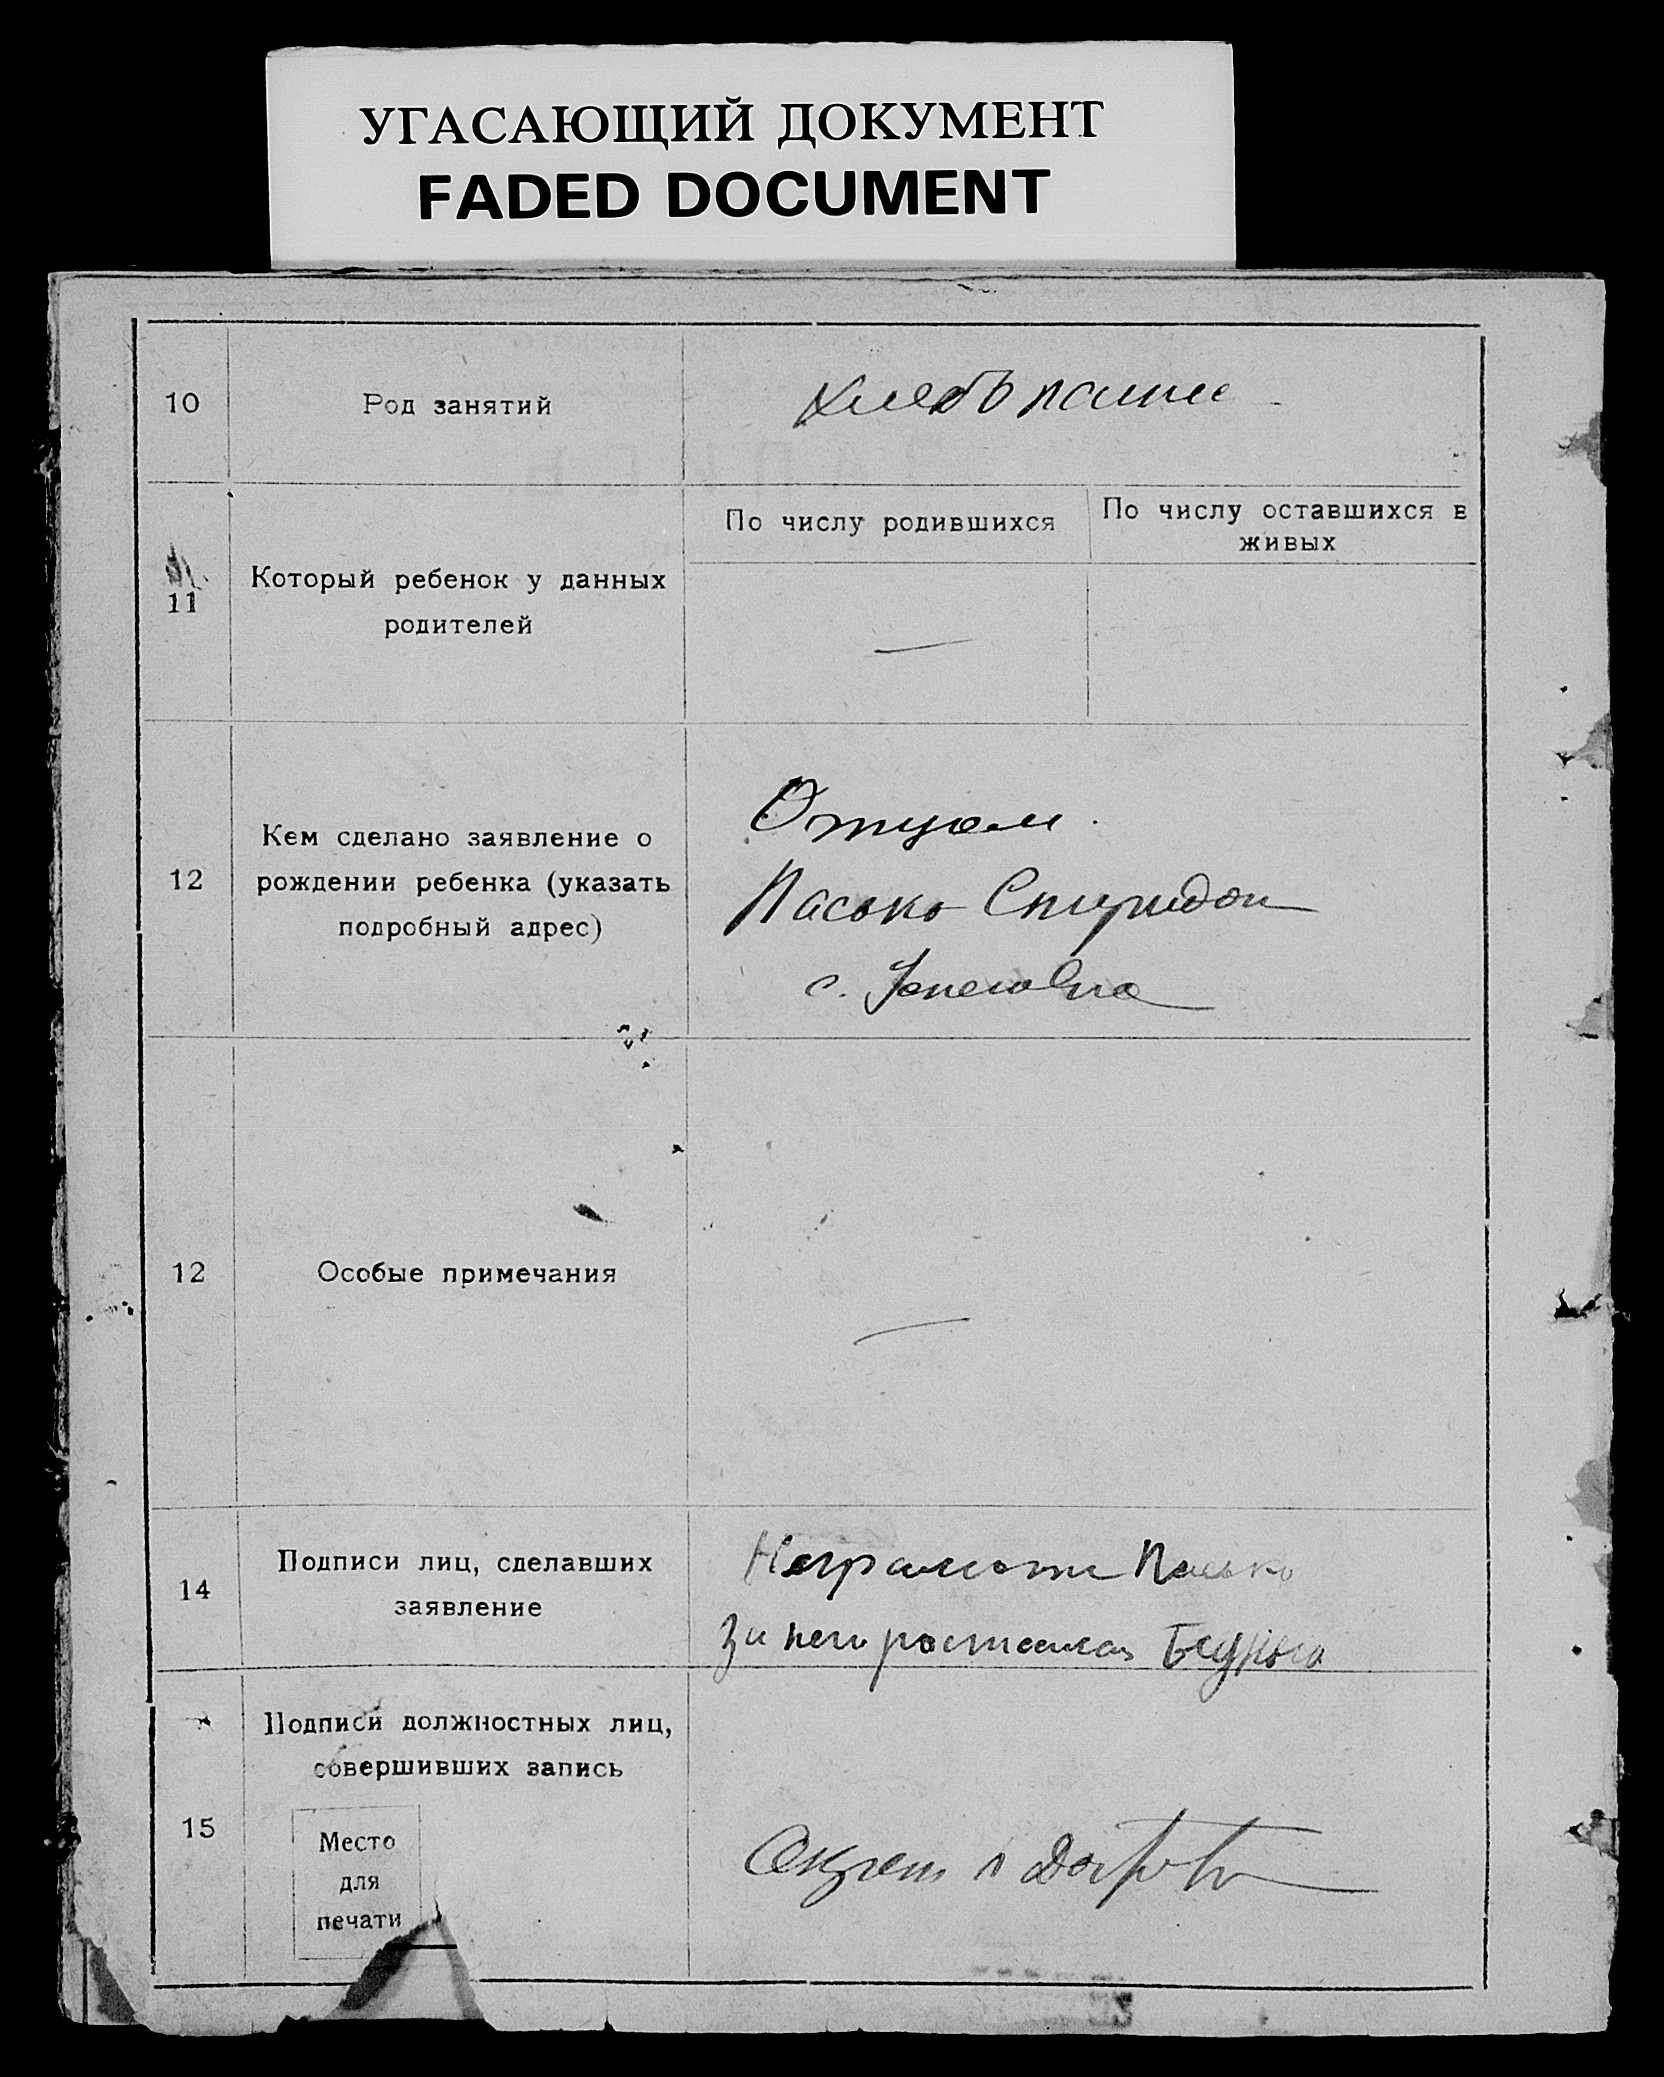 УГАСАЮЩИЙ ДОКУМЕНТ
FADED DOCUMENT
10
Род занятий
Хлебопашец
11
Который ребенок у данных
родителей
По числу родившихся
По числу оставшихся в
живых
—
12
Кем сделано заявление о
рождении ребенка (указать
подробный адрес)
Отцом.
Пасько Спиридон
с.
12
Особые примечания
—
14
Подписи лиц, сделавших
заявление
Пасько
За него
15
Подписи должностных лиц,
совершивших запись
Место
для
печати